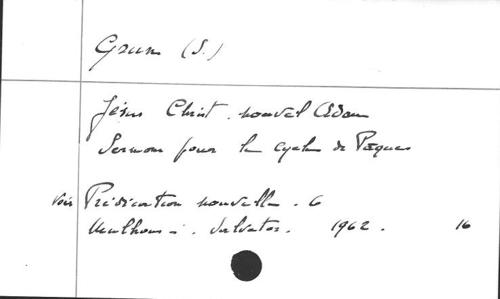 Grun (S.)
Jésus Christ. nouvel Adam
Sermons pour le cycle de Pâques
Voir Prédication nouvelle. 6
Mulhouse. Salvator. 1962. 16